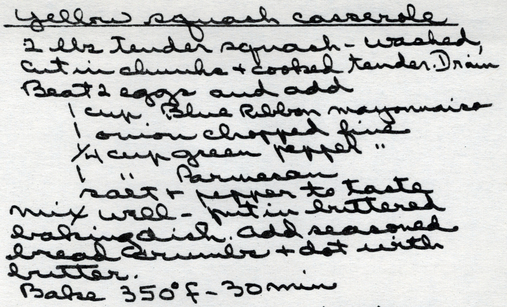 Yellow squash casserole
2 lbs tender squash - washed,
cut in chunks + cooked tender. Drain
Beat 2 eggs and add
1 cup Blue Ribbon mayonnaise
1 onion chopped fine
1/4 cup green pepper "
1 " Parmesan
salt + pepper to taste
mix well - put in buttered
baking dish. add seasoned
bread crumbs + dot with
butter.
Bake 350°f - 30 min